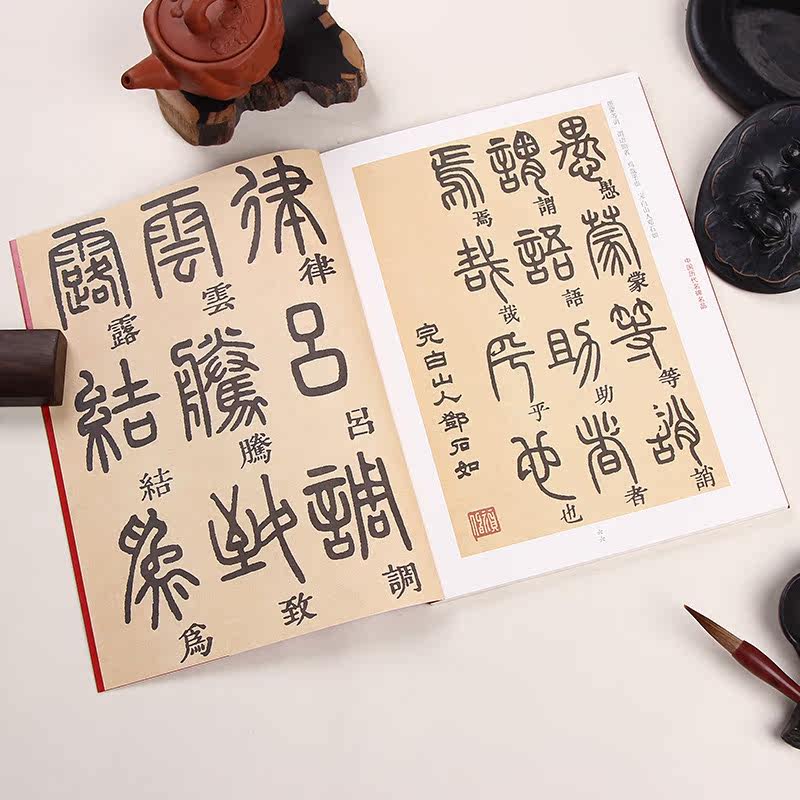 律呂調
律呂調
雲騰致
雲騰致
露結爲
露結爲
愚蒙等誚
愚蒙等誚
謂語助者
謂語助者
焉哉乎也
焉哉乎也
完白山人鄧石如
中国历代名碑名品
六六